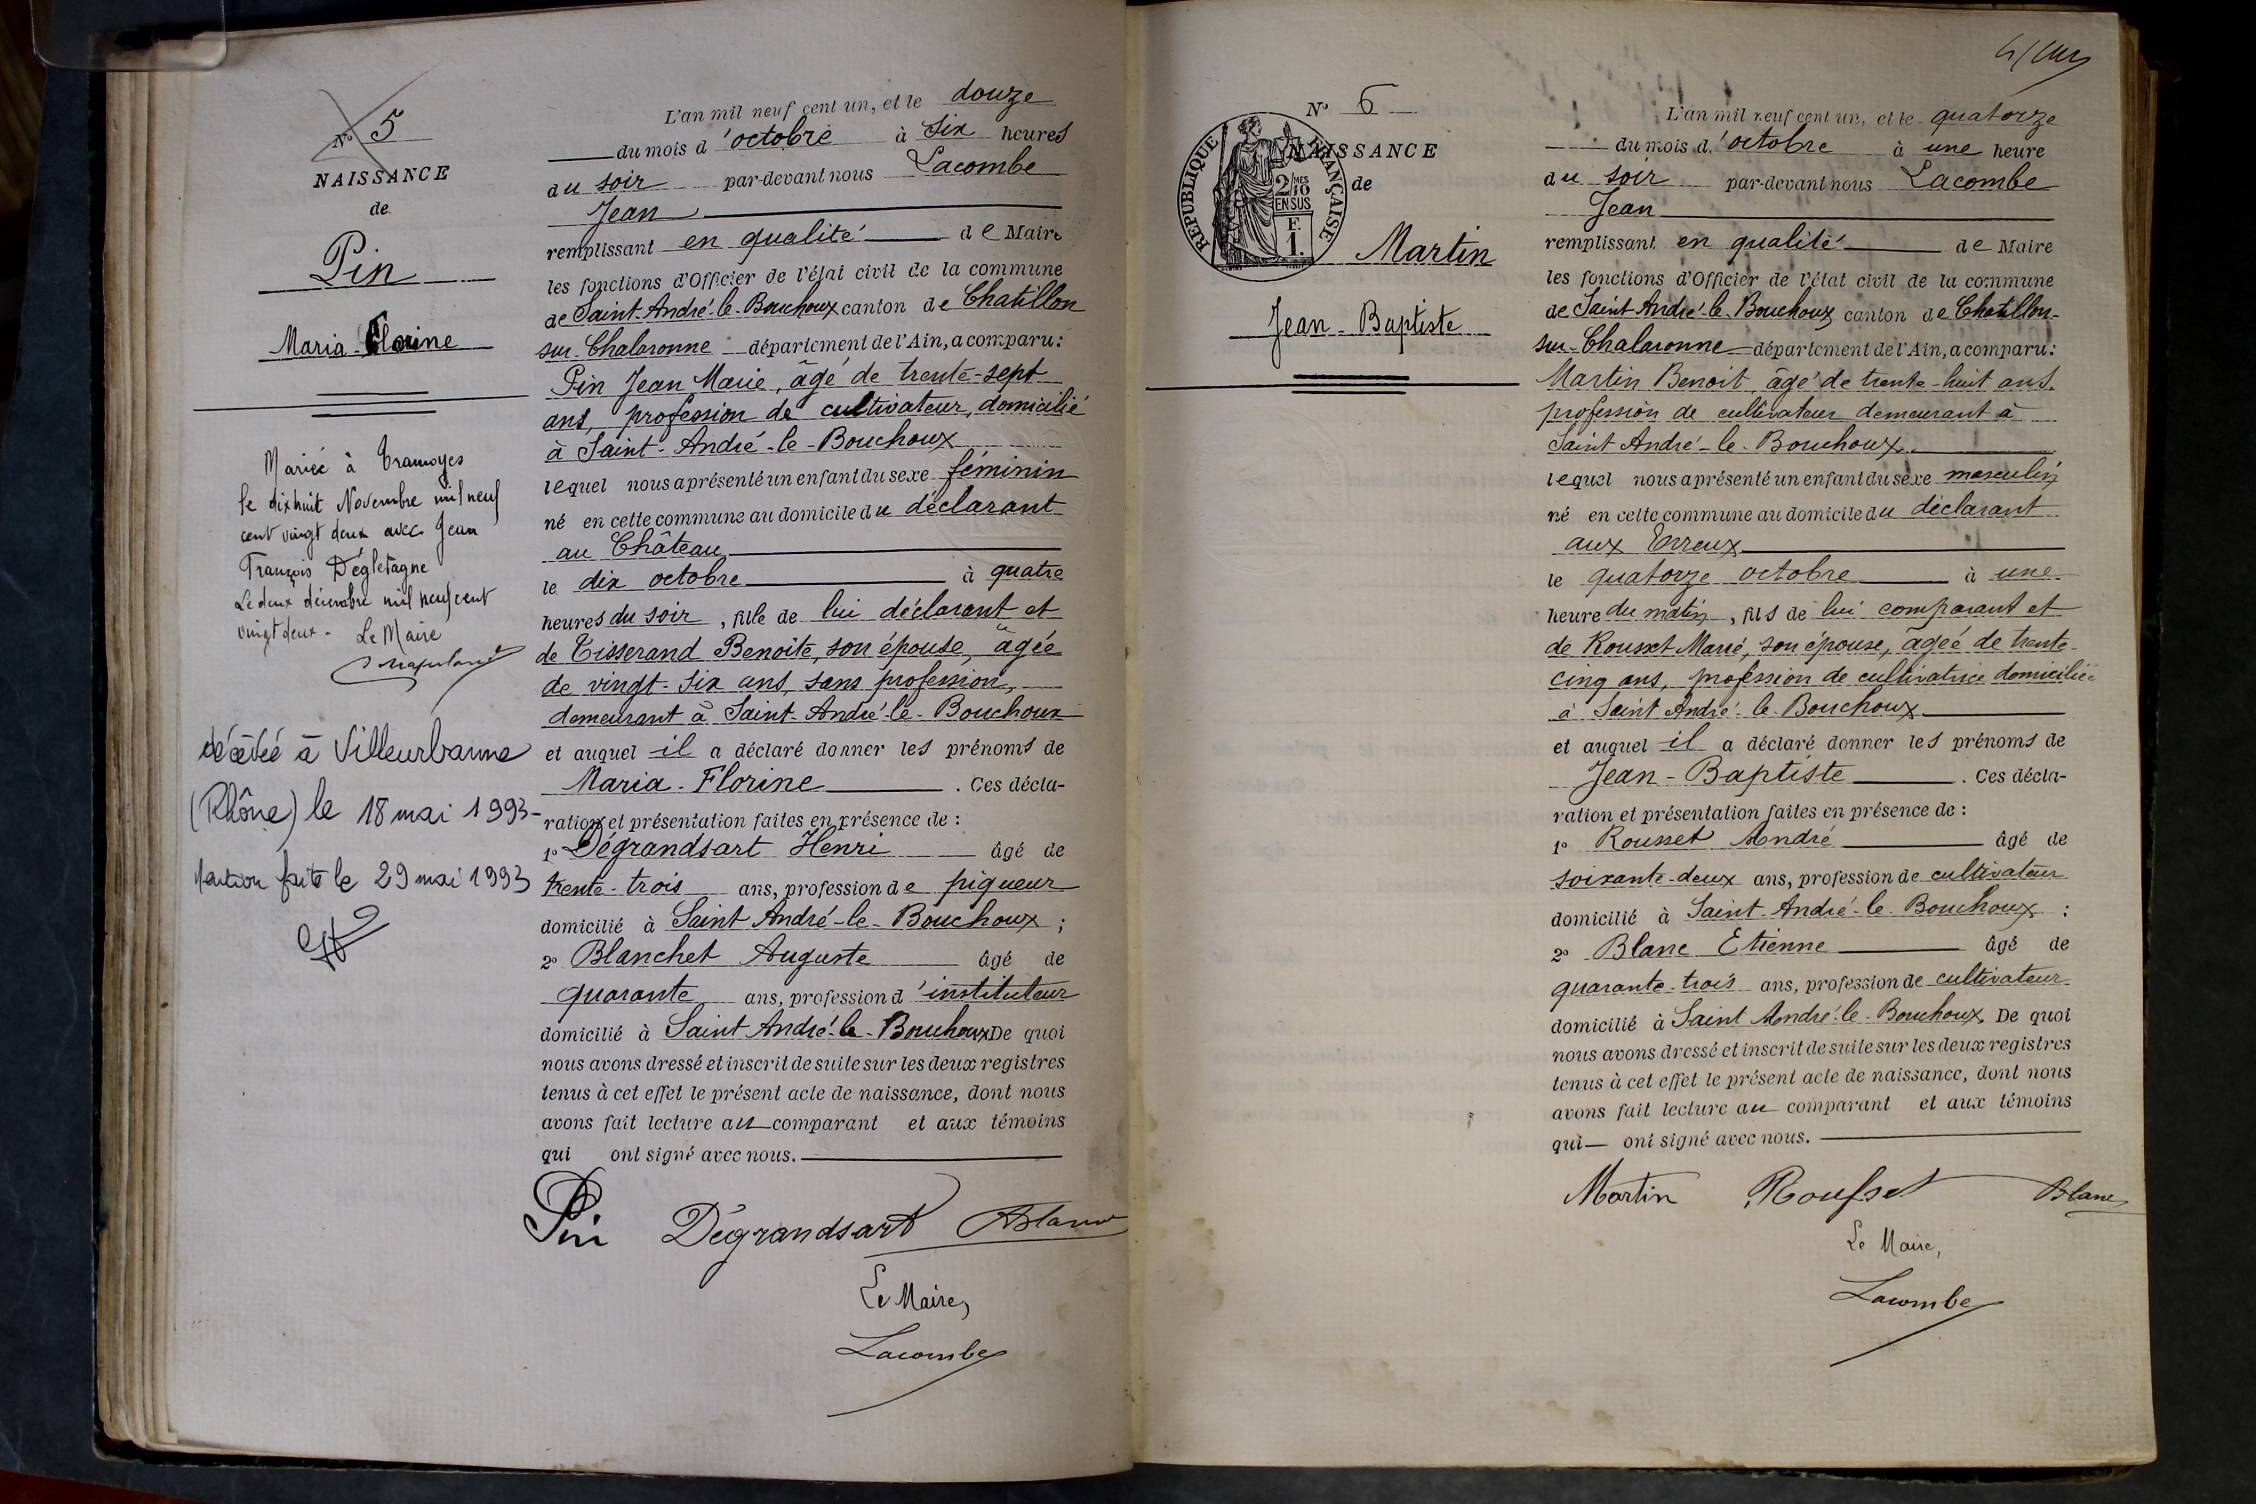 N° 5
NAISSANCE
de
Pin
Maria Florine
Mariée à Tramoyes
le dix huit Novembre mil neuf
cent vingt deux avec Jean
François Dégletagne
Le deux décembre mil neuf cent
vingt deux - Le Maire
décédée à Villeurbanne
(Rhône) le 18 mai 1993-
Mention faite le 29 mai 1993
L'an mil neuf cent un, et le douze
du mois d'octobre à six heures
du soir par-devant nous Lacombe
Jean
remplissant en qualité de Maire
les fonctions d'Officier de l'état civil de la commune
de Saint-André-le-Bouchoux canton de Chatillon
sur-Chalaronne département de l'Ain, a comparu:
Pin Jean Marie, âgé de trente-sept
ans, profession de cultivateur, domicilié
à Saint-André-le-Bouchoux
lequel nous a présenté un enfant du sexe féminin
né en cette commune au domicile du déclarant
au Château
le dix octobre à quatre
heures du soir, fille de lui déclarant et
de Tisserand Benoite, son épouse, âgée
de vingt-six ans, sans profession,
demeurant à Saint-André-le-Bouchoux
et auquel il a déclaré donner les prénoms de
Maria-Florine. Ces décla-
ration et présentation faites en présence de:
1° Dégrandsart Henri âgé de
trente-trois ans, profession de piqueur
domicilié à Saint André-le-Bouchoux;
2° Blanchet Auguste âgé de
quarante ans, profession d'instituteur
domicilié à Saint André-le-Bouchoux De quoi
nous avons dressé et inscrit de suite sur les deux registres
tenus à cet effet le présent acte de naissance, dont nous
avons fait lecture au comparant et aux témoins
qui ont signé avec nous.
Pin Dégrandsart
Le Maire,
Lacombe
N° 6
NAISSANCE
de
RÉPUBLIQUE FRANÇAISE
2/10 MES
EN SUS
F.
1.
Martin
Jean-Baptiste
L'an mil neuf cent un, et le quatorze
du mois d'octobre à une heure
du soir par-devant nous Lacombe
Jean
remplissant en qualité de Maire
les fonctions d'Officier de l'état civil de la commune
de Saint André-le-Bouchoux canton de Chatillon-
sur-Chalaronne département de l'Ain, a comparu:
Martin Benoit, âgé de trente-huit ans,
profession de cultivateur demeurant à
Saint André-le-Bouchoux
lequel nous a présenté un enfant du sexe masculin
né en cette commune au domicile du déclarant
aux Erreux
le quatorze octobre à une
heure du matin, fils de lui comparant et
de Rousset Marie, son épouse, âgée de trente-
cinq ans, profession de cultivatrice domiciliée
à Saint André-le-Bouchoux
et auquel il a déclaré donner les prénoms de
Jean-Baptiste. Ces décla-
ration et présentation faites en présence de:
1° Rousset André âgé de
soixante-deux ans, profession de cultivateur
domicilié à Saint-André-le-Bouchoux:
2° Blanc Etienne âgé de
quarante-trois ans, profession de cultivateur
domicilié à Saint André-le-Bouchoux De quoi
nous avons dressé et inscrit de suite sur les deux registres
tenus à cet effet le présent acte de naissance, dont nous
avons fait lecture au comparant et aux témoins
qui ont signé avec nous.
Martin Rousset Blanc
Le Maire,
Lacombe